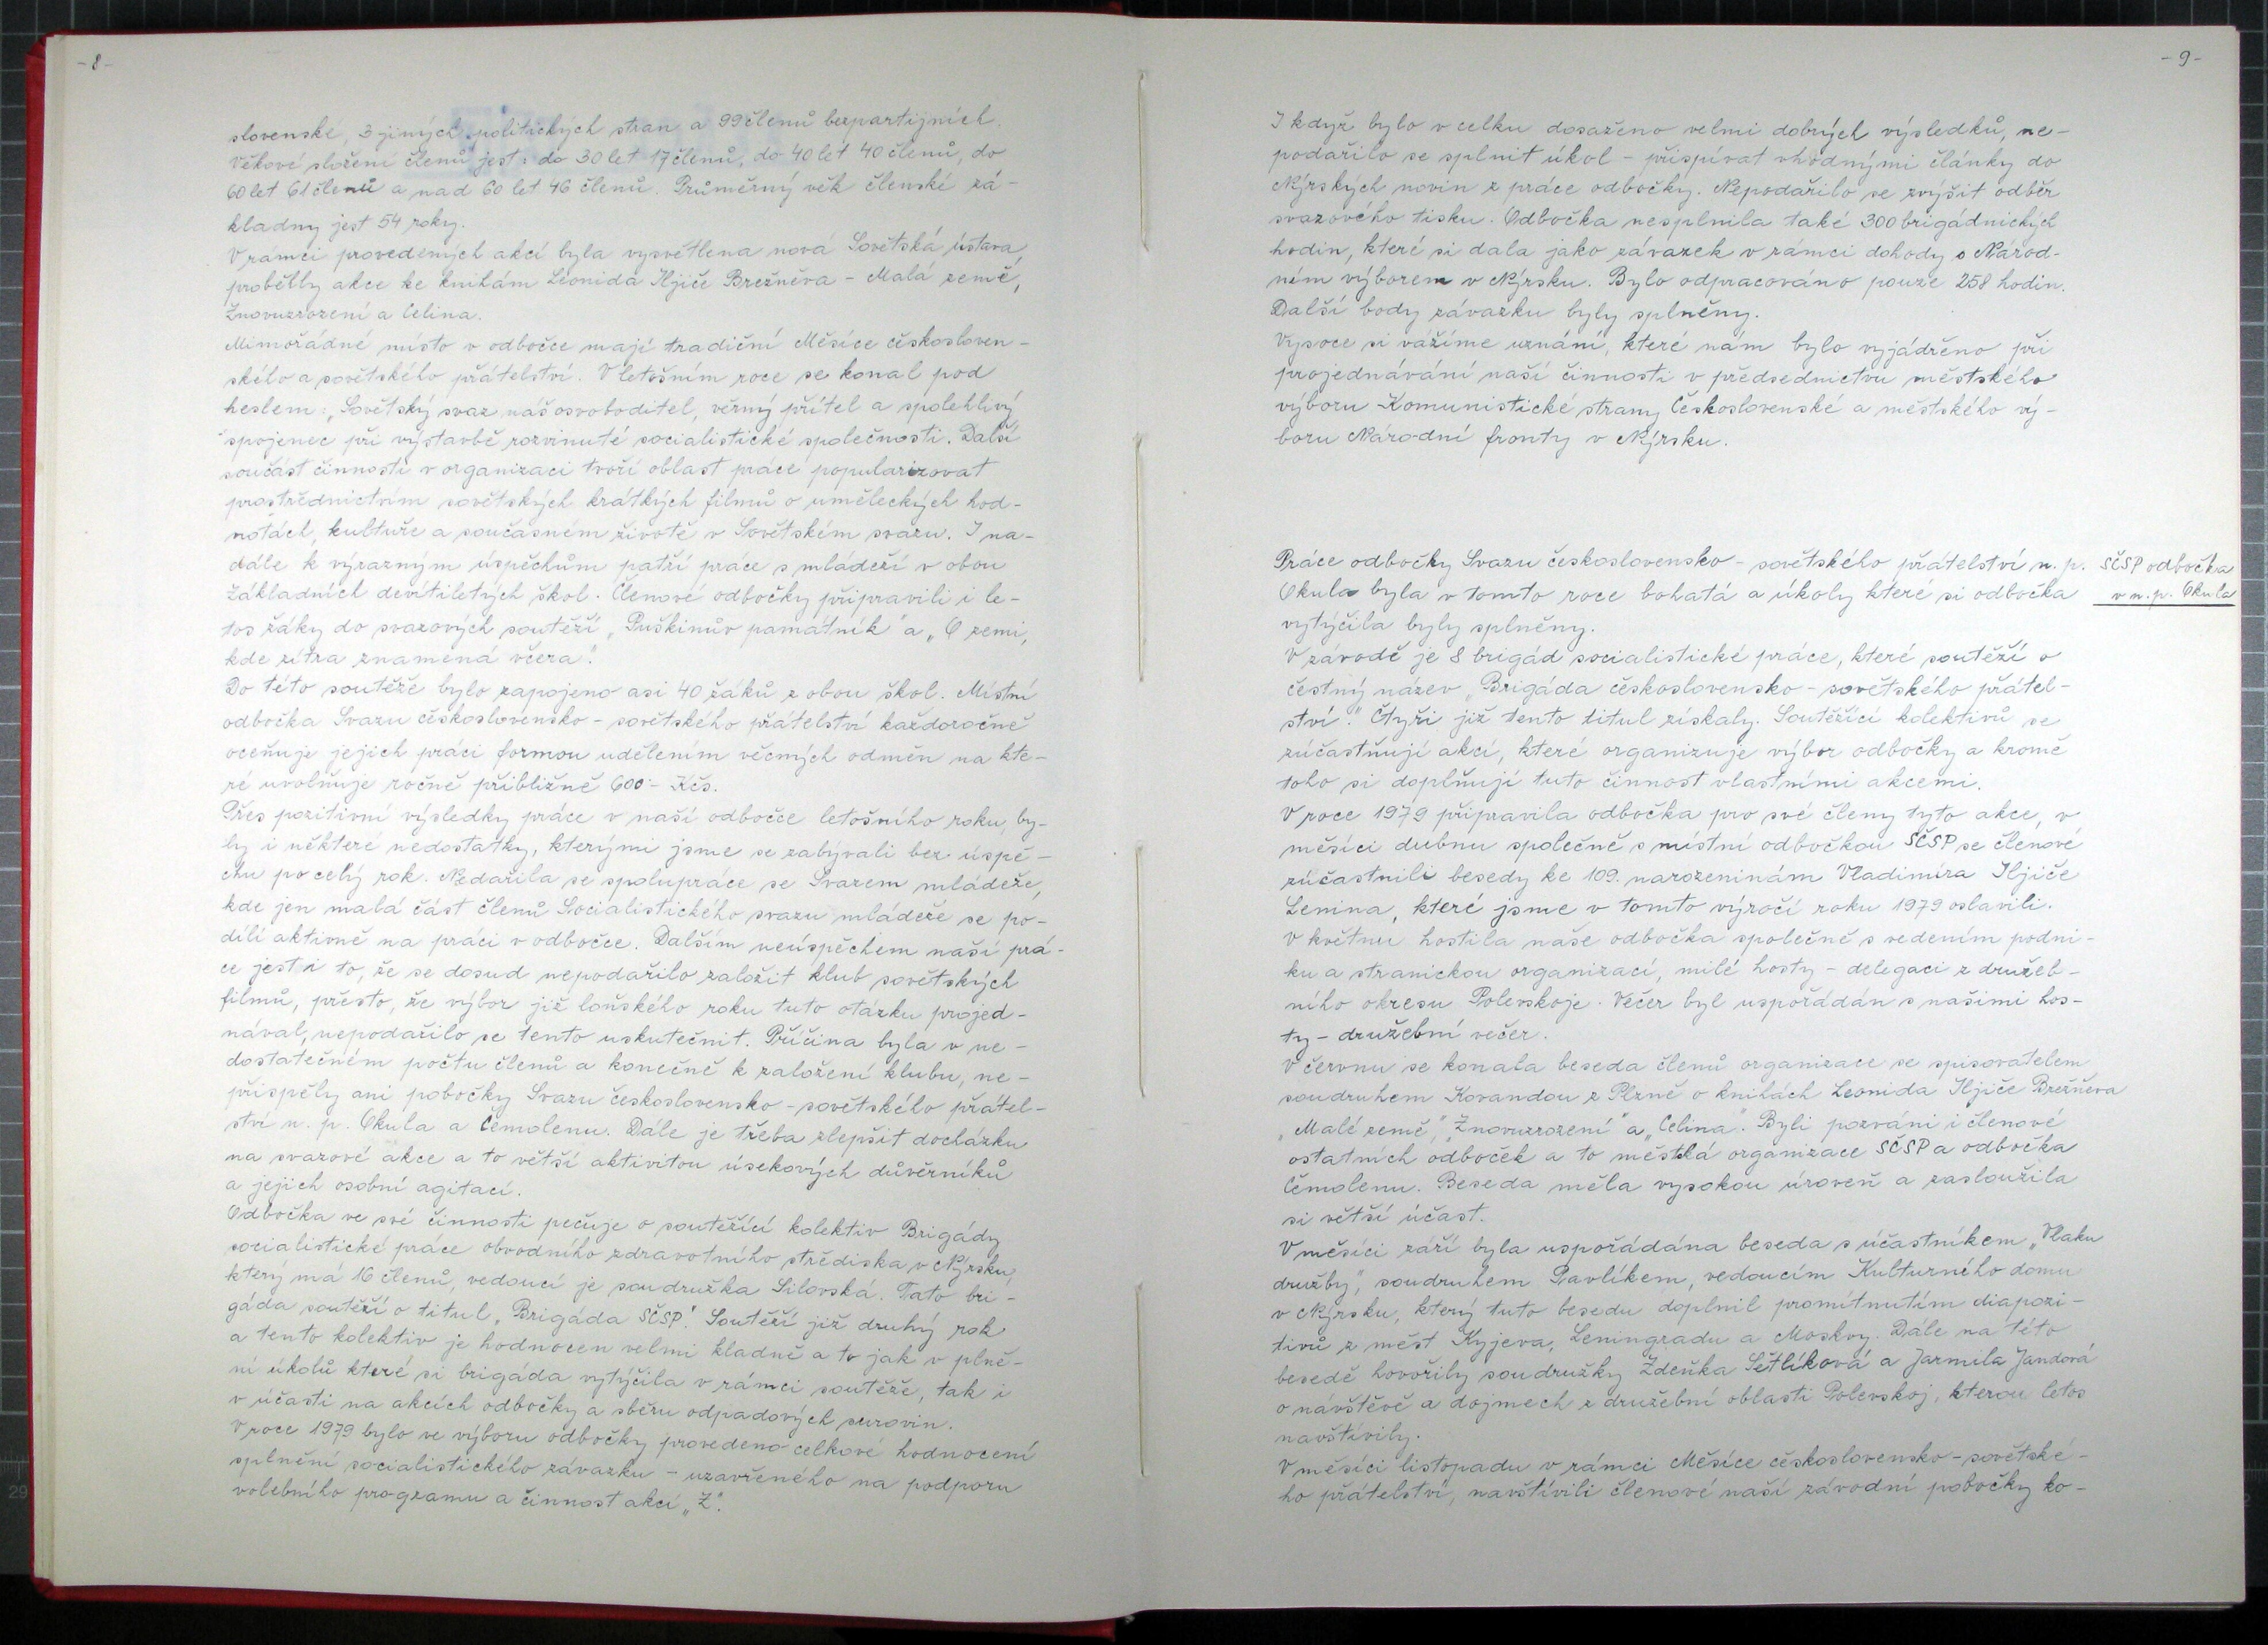 - 8 -
slovenské, 3 jiných politických stran a 99 členů bezpartijních.
Věkové složení členů jest: do 30 let 17 členů, do 40 let 40 členů, do
60 let 61 členů a nad 60 let 46 členů. Průměrný věk členské zá-
kladny jest 54 roky.
V rámci provedených akcí byla vysvětlena nová Sovětská ústava,
proběhly akce ke knihám Leonida Iljiče Brežněva - Malá země,
Znovuzrození a Celina.
Mimořádné místo v odbočce mají tradiční Měsíce českosloven-
ského a sovětského přátelství. V letošním roce se konal pod
heslem: „Sovětský svaz náš osvoboditel, věrný přítel a spolehlivý
spojenec při výstavbě rozvinuté socialistické společnosti. Další
součást činnosti v organizaci tvoří oblast práce popularizovat
prostřednictvím sovětských krátkých filmů o uměleckých hod-
notách, kultuře a současném životě v Sovětském svazu. I na-
dále k výrazným úspěchům patří práce s mládeží v obou
Základních devítiletých škol. Členové odbočky připravili i le-
tos žáky do svazových soutěží „Puškinův památník" a „O zemi,
kde zítra znamená včera".
Do této soutěže bylo zapojeno asi 40 žáků z obou škol. Místní
odbočka Svazu československo - sovětského přátelství každoročně
oceňuje jejich práci formou udělením věcných odměn na kte-
ré uvolňuje ročně přibližně 600 - Kčs.
Přes pozitivní výsledky práce v naší odbočce letošního roku, by-
ly i některé nedostatky, kterými jsme se zabývali bez úspě-
chu po celý rok. Nedařila se spolupráce se Svazem mládeže,
kde jen malá část členů Socialistického svazu mládeže se po-
dílí aktivně na práci v odbočce. Dalším neúspěchem naší prá-
ce jest i to, že se dosud nepodařilo založit klub sovětských
filmů, přesto, že výbor již loňského roku tuto otázku projed-
nával, nepodařilo se tento uskutečnit. Příčina byla v ne-
dostatečném počtu členů a konečně k založení klubu, ne-
přispěly ani pobočky Svazu československo - sovětského přátel-
ství n. p. Okula a Čemolenu. Dále je třeba zlepšit docházku
na svazové akce a to větší aktivitou úsekových důvěrníků
a jejich osobní agitací.
Odbočka ve své činnosti pečuje o soutěžící kolektiv Brigády
socialistické práce obvodního zdravotního střediska v Nýrsku,
který má 16 členů, vedoucí je soudružka Silovská. Tato bri-
gáda soutěží o titul „Brigáda SČSP". Soutěží již druhý rok
a tento kolektiv je hodnocen velmi kladně a to jak v plně-
ní úkolů které si brigáda vytýčila v rámci soutěže, tak i
v účasti na akcích odbočky a sběru odpadových surovin.
V roce 1979 bylo ve výboru odbočky provedeno celkové hodnocení
splnění socialistického závazku - uzavřeného na podporu
volebního programu a činnost akcí „Z".
- 9 -
I když bylo v celku dosaženo velmi dobrých výsledků, ne-
podařilo se splnit úkol - přispívat vhodnými články do
Nýrských novin z práce odbočky. Nepodařilo se zvýšit odběr
svazového tisku. Odbočka nesplnila také 300 brigádnických
hodin, které si dala jako závazek v rámci dohody s Národ-
ním výborem v Nýrsku. Bylo odpracováno pouze 258 hodin.
Další body závazku byly splněny.
Vysoce si vážíme uznání, které nám bylo vyjádřeno při
projednávání naší činnosti v předsednictvu městského
výboru Komunistické strany Československé a městského vý-
boru Národní fronty v Nýrsku.
Práce odbočky Svazu československo - sovětského přátelství n. p.
Okula byla v tomto roce bohatá a úkoly které si odbočka
vytýčila byly splněny.
SČSP odbočka
v n. p. Okula
V závodě je 8 brigád socialistické práce, které soutěží o
čestný název „Brigáda československo - sovětského přátel-
ství." Čtyři již tento titul získaly. Soutěžící kolektivů se
zúčastňují akcí, které organizuje výbor odbočky a kromě
toho si doplňují tuto činnost vlastními akcemi.
V roce 1979 připravila odbočka pro své členy tyto akce, v
měsíci dubnu společně s místní odbočkou SČSP se členové
zúčastnili besedy ke 109. narozeninám Vladimíra Iljiče
Lenina, které jsme v tomto výročí roku 1979 oslavili.
V květnu hostila naše odbočka společně s vedením podni-
ku a stranickou organizací, milé hosty - delegaci z družeb-
ního okresu Polevskoje. Večer byl uspořádán s našimi hos-
ty - družební večer.
V červnu se konala beseda členů organizace se spisovatelem
soudruhem Kovandou z Plzně o knihách Leonida Iljiče Brežněva
„Malé země", „Znovuzrození" a „Celina". Byli pozváni i členové
ostatních odboček a to městká organizace SČSP a odbočka
Čemolenu. Beseda měla vysokou úroveň a zasloužila
si větší účast.
V měsíci září byla uspořádána beseda s účastníkem „Vlaku
družby", soudruhem Pavlíkem, vedoucím Kulturního domu
v Nýrsku, který tuto besedu doplnil promítnutím diapozi-
tivů z měst Kyjeva, Leningradu a Moskvy. Dále na této
besedě hovořily soudružky Zdeňka Šetlíková a Jarmila Jandová
o návštěvě a dojmech z družební oblasti Polevskoj, kterou letos
navštívily.
V měsíci listopadu v rámci Měsíce československo - sovětské-
ho přátelství, navštívili členové naší závodní pobočky ko-